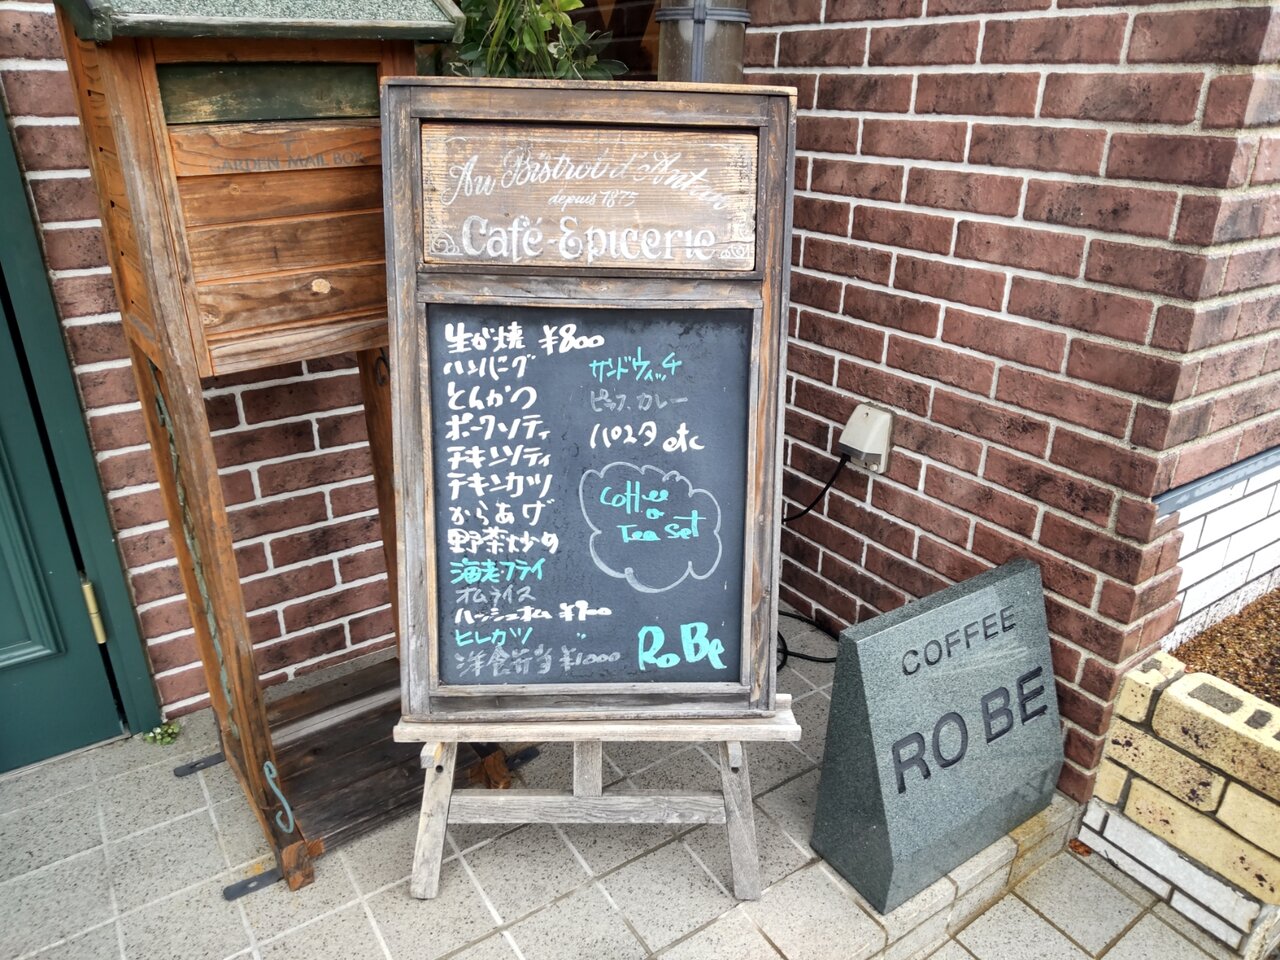 GARDEN MAIL BOX
Au Bistrot d'Antan
depuis 1875
Café-Epicerie
生が焼 ¥800
ハンバーグ
とんかつ
ポークソティ
チキンソティ
チキンカツ
からあげ
野菜炒め
海老フライ
オムライス
ハッシュオム
ヒレカツ
洋食弁当 ¥1000
サンドウィッチ
カレー
パスタ etc
Coffee
or
Tea Set
RoBe
COFFEE
ROBE